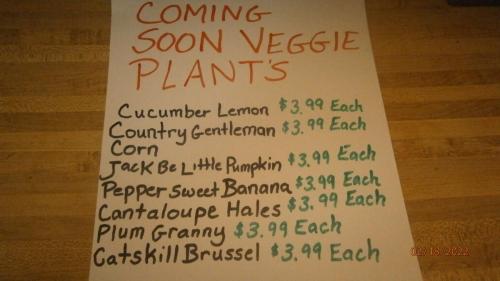 COMING
SOON VEGGIE
PLANT'S
Cucumber Lemon $3.99 Each
Country Gentleman $3.99 Each
Corn
Jack Be Little Pumpkin $3.99 Each
Pepper Sweet Banana $3.99 Each
Cantaloupe Hales $3.99 Each
Plum Granny $3.99 Each
Catskill Brussel $3.99 Each